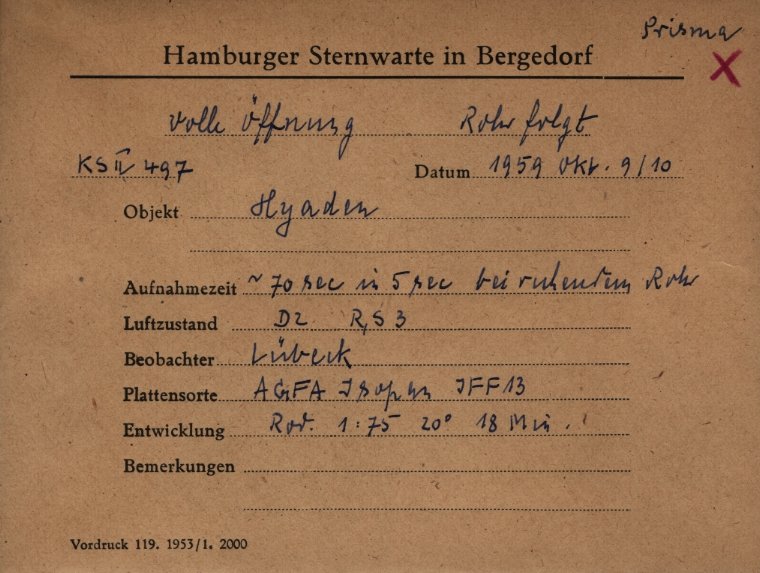 Prisma
Hamburger Sternwarte in Bergedorf
X
Volle Öffnung Rohr folgt
KS II 497 Datum 1959 Okt. 9/10
Objekt Hyaden
Aufnahmezeit ~ 70 sec in 5 sec bei ruhendem Rohr
Luftzustand D2 R,S 3
Beobachter Lübeck
Plattensorte AGFA Isopan IFF13
Entwicklung Rod. 1:75 20° 18 Min.
Bemerkungen
Vordruck 119. 1953/1. 2000